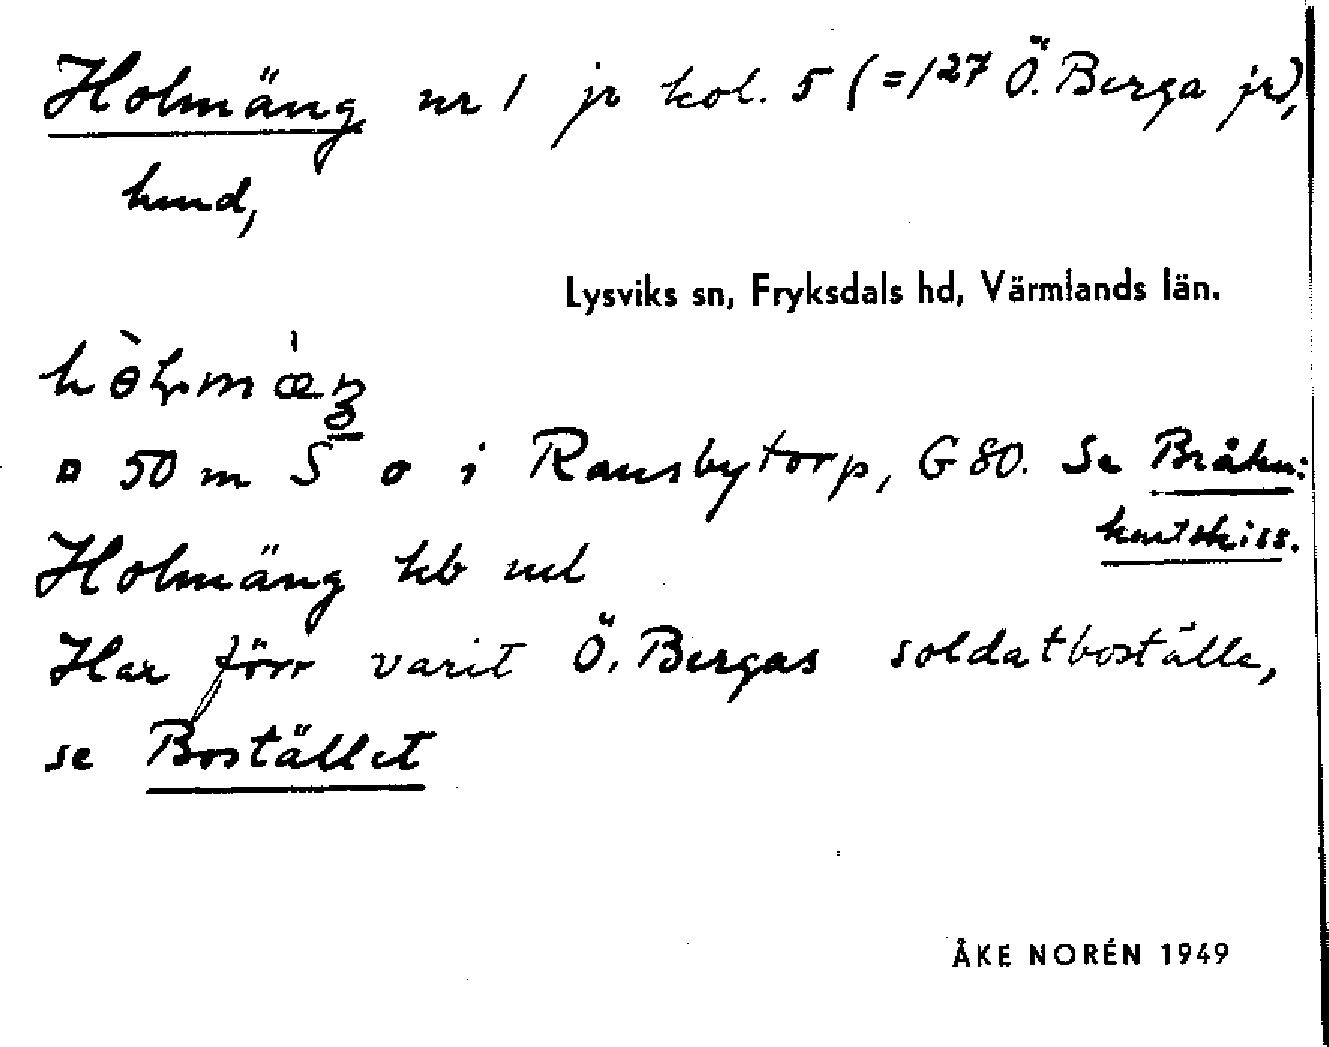 Holmäng nr 1 jr kol. 5 (=1²⁷ Ö. Berga jr),
hmd,
Lysviks sn, Fryksdals hd, Värmlands län.
¤ 50 m S o i Ransbytorp, G 80. Se Bråten:
kartskiss.
Holmäng kb ml
Har förr varit Ö. Bergas soldatboställe,
se Bostället
ÅKE NORÉN 1949